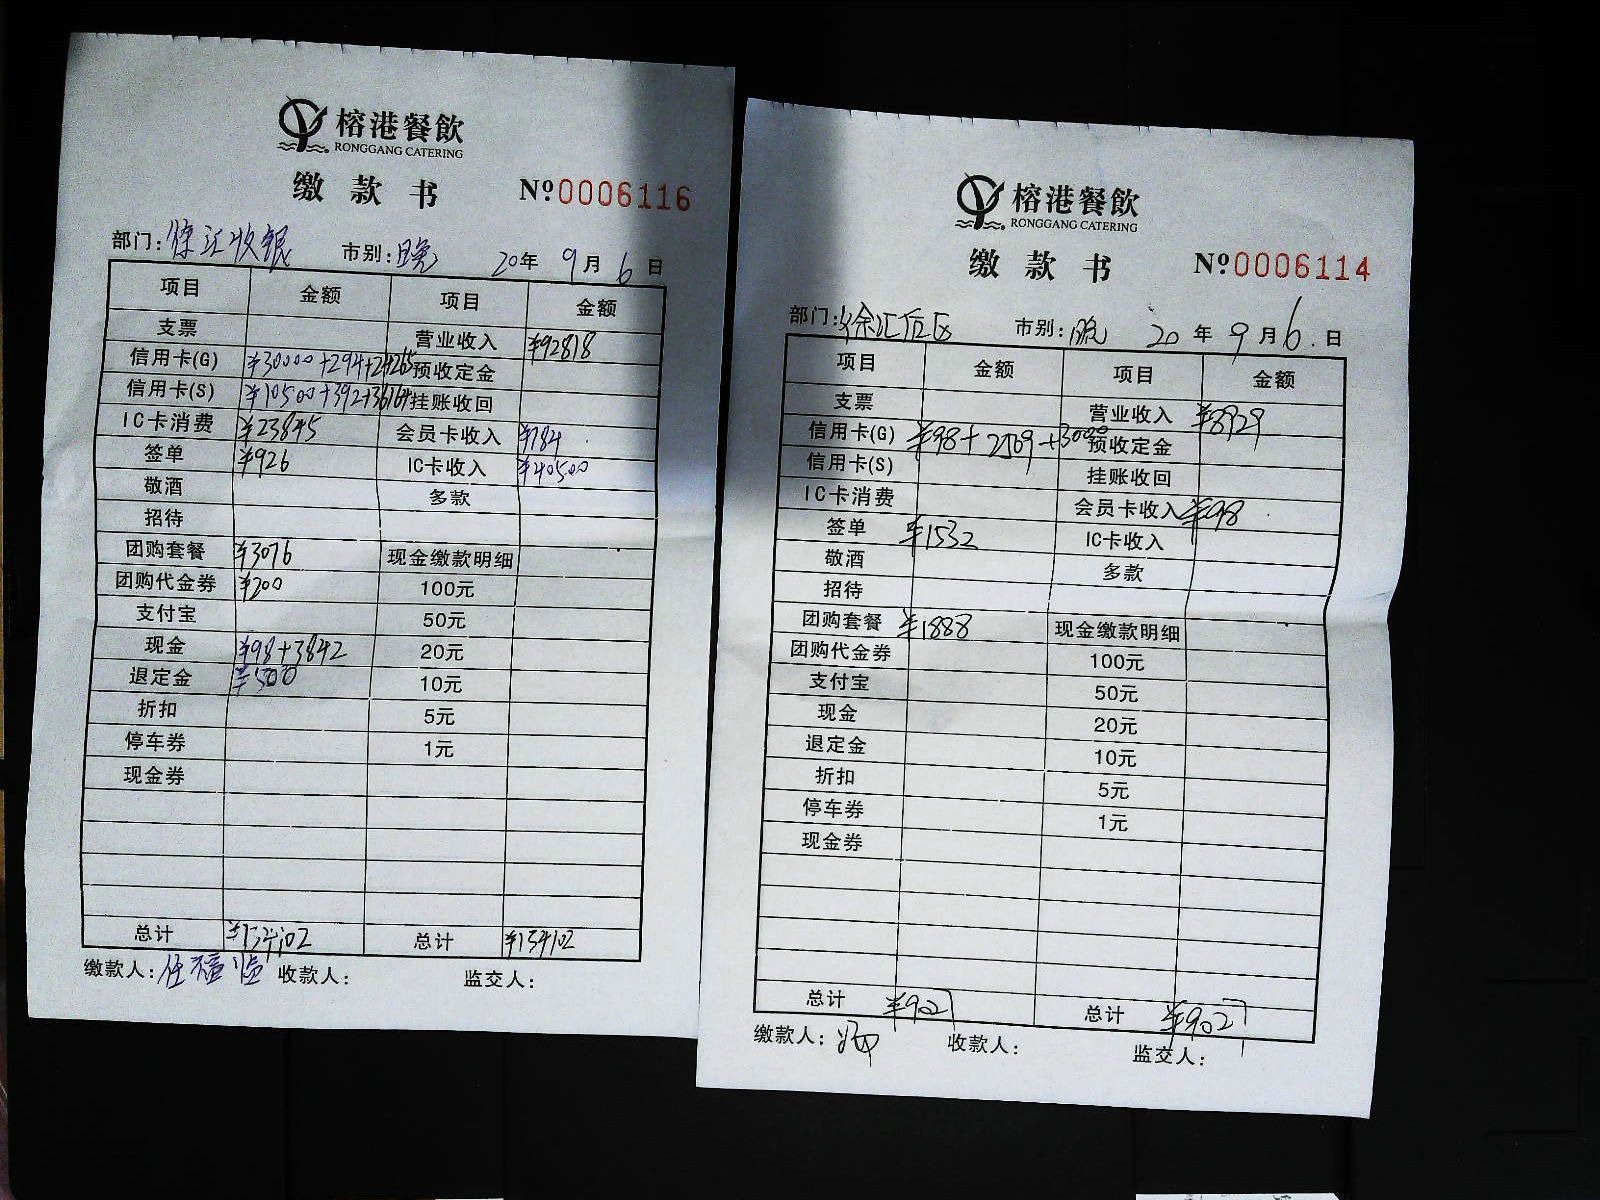 榕港餐飲
RONGGANG CATERING
缴款书 №0006116
部门:徐汇收银 市别:晚 20年9月6日
项目 金额 项目 金额
支票 营业收入 ¥92818
信用卡(G) ¥30000+294+24265 预收定金
信用卡(S) ¥10500+392+36164 挂账收回
IC卡消费 ¥23845 会员卡收入 ¥784
签单 ¥926 IC卡收入 ¥40500
敬酒 多款
招待
团购套餐 ¥3076 现金缴款明细
团购代金券 ¥200 100元
支付宝 50元
现金 ¥98+3842 20元
退定金 ¥500 10元
折扣 5元
停车券 1元
现金券
总计 ¥134102 总计 ¥134102
缴款人: 收款人: 监交人:
榕港餐飲
RONGGANG CATERING
缴款书 №0006114
部门:徐汇后区 市别:晚 20年9月6日
项目 金额 项目 金额
支票 营业收入 ¥8929
信用卡(G) ¥98+2509+3000 预收定金
信用卡(S) 挂账收回
IC卡消费 会员卡收入 ¥98
签单 ¥1532 IC卡收入
敬酒 多款
招待
团购套餐 ¥1888 现金缴款明细
团购代金券 100元
支付宝 50元
现金 20元
退定金 10元
折扣 5元
停车券 1元
现金券
总计 ¥9027 总计 ¥9027
缴款人: 收款人: 监交人: